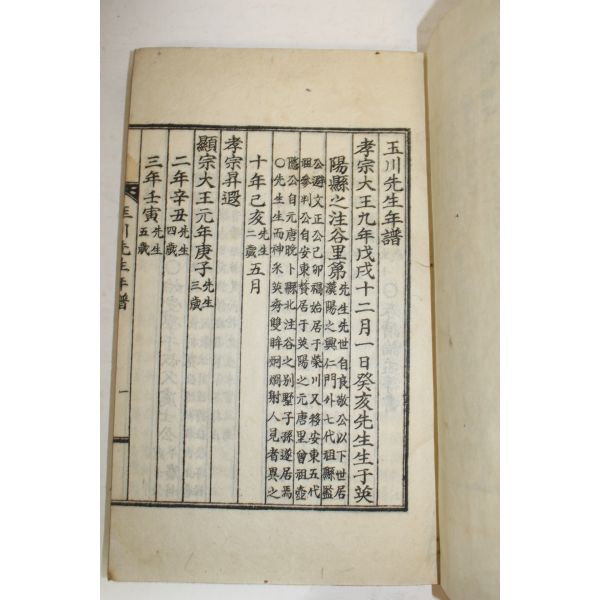 玉川先生年譜
孝宗大王九年戊戌十二月一日癸亥先生生于英
陽縣之注谷里第先生先世自良敬公以下世居
漢陽之興仁門外七代祖縣監
公避文正公己卯禍始居于榮川又移安東五代
祖參判公自安東贅居于英陽之元唐里曾祖壺
隱公自元唐晩卜縣北注谷之別墅子孫遂居焉
○先生生而神采英秀雙眸烱烱射人見者異之
十年己亥先生二歲五月
孝宗昇遐
顯宗大王元年庚子先生三歲
二年辛丑先生四歲
三年壬寅先生五歲
玉川先生年譜 一